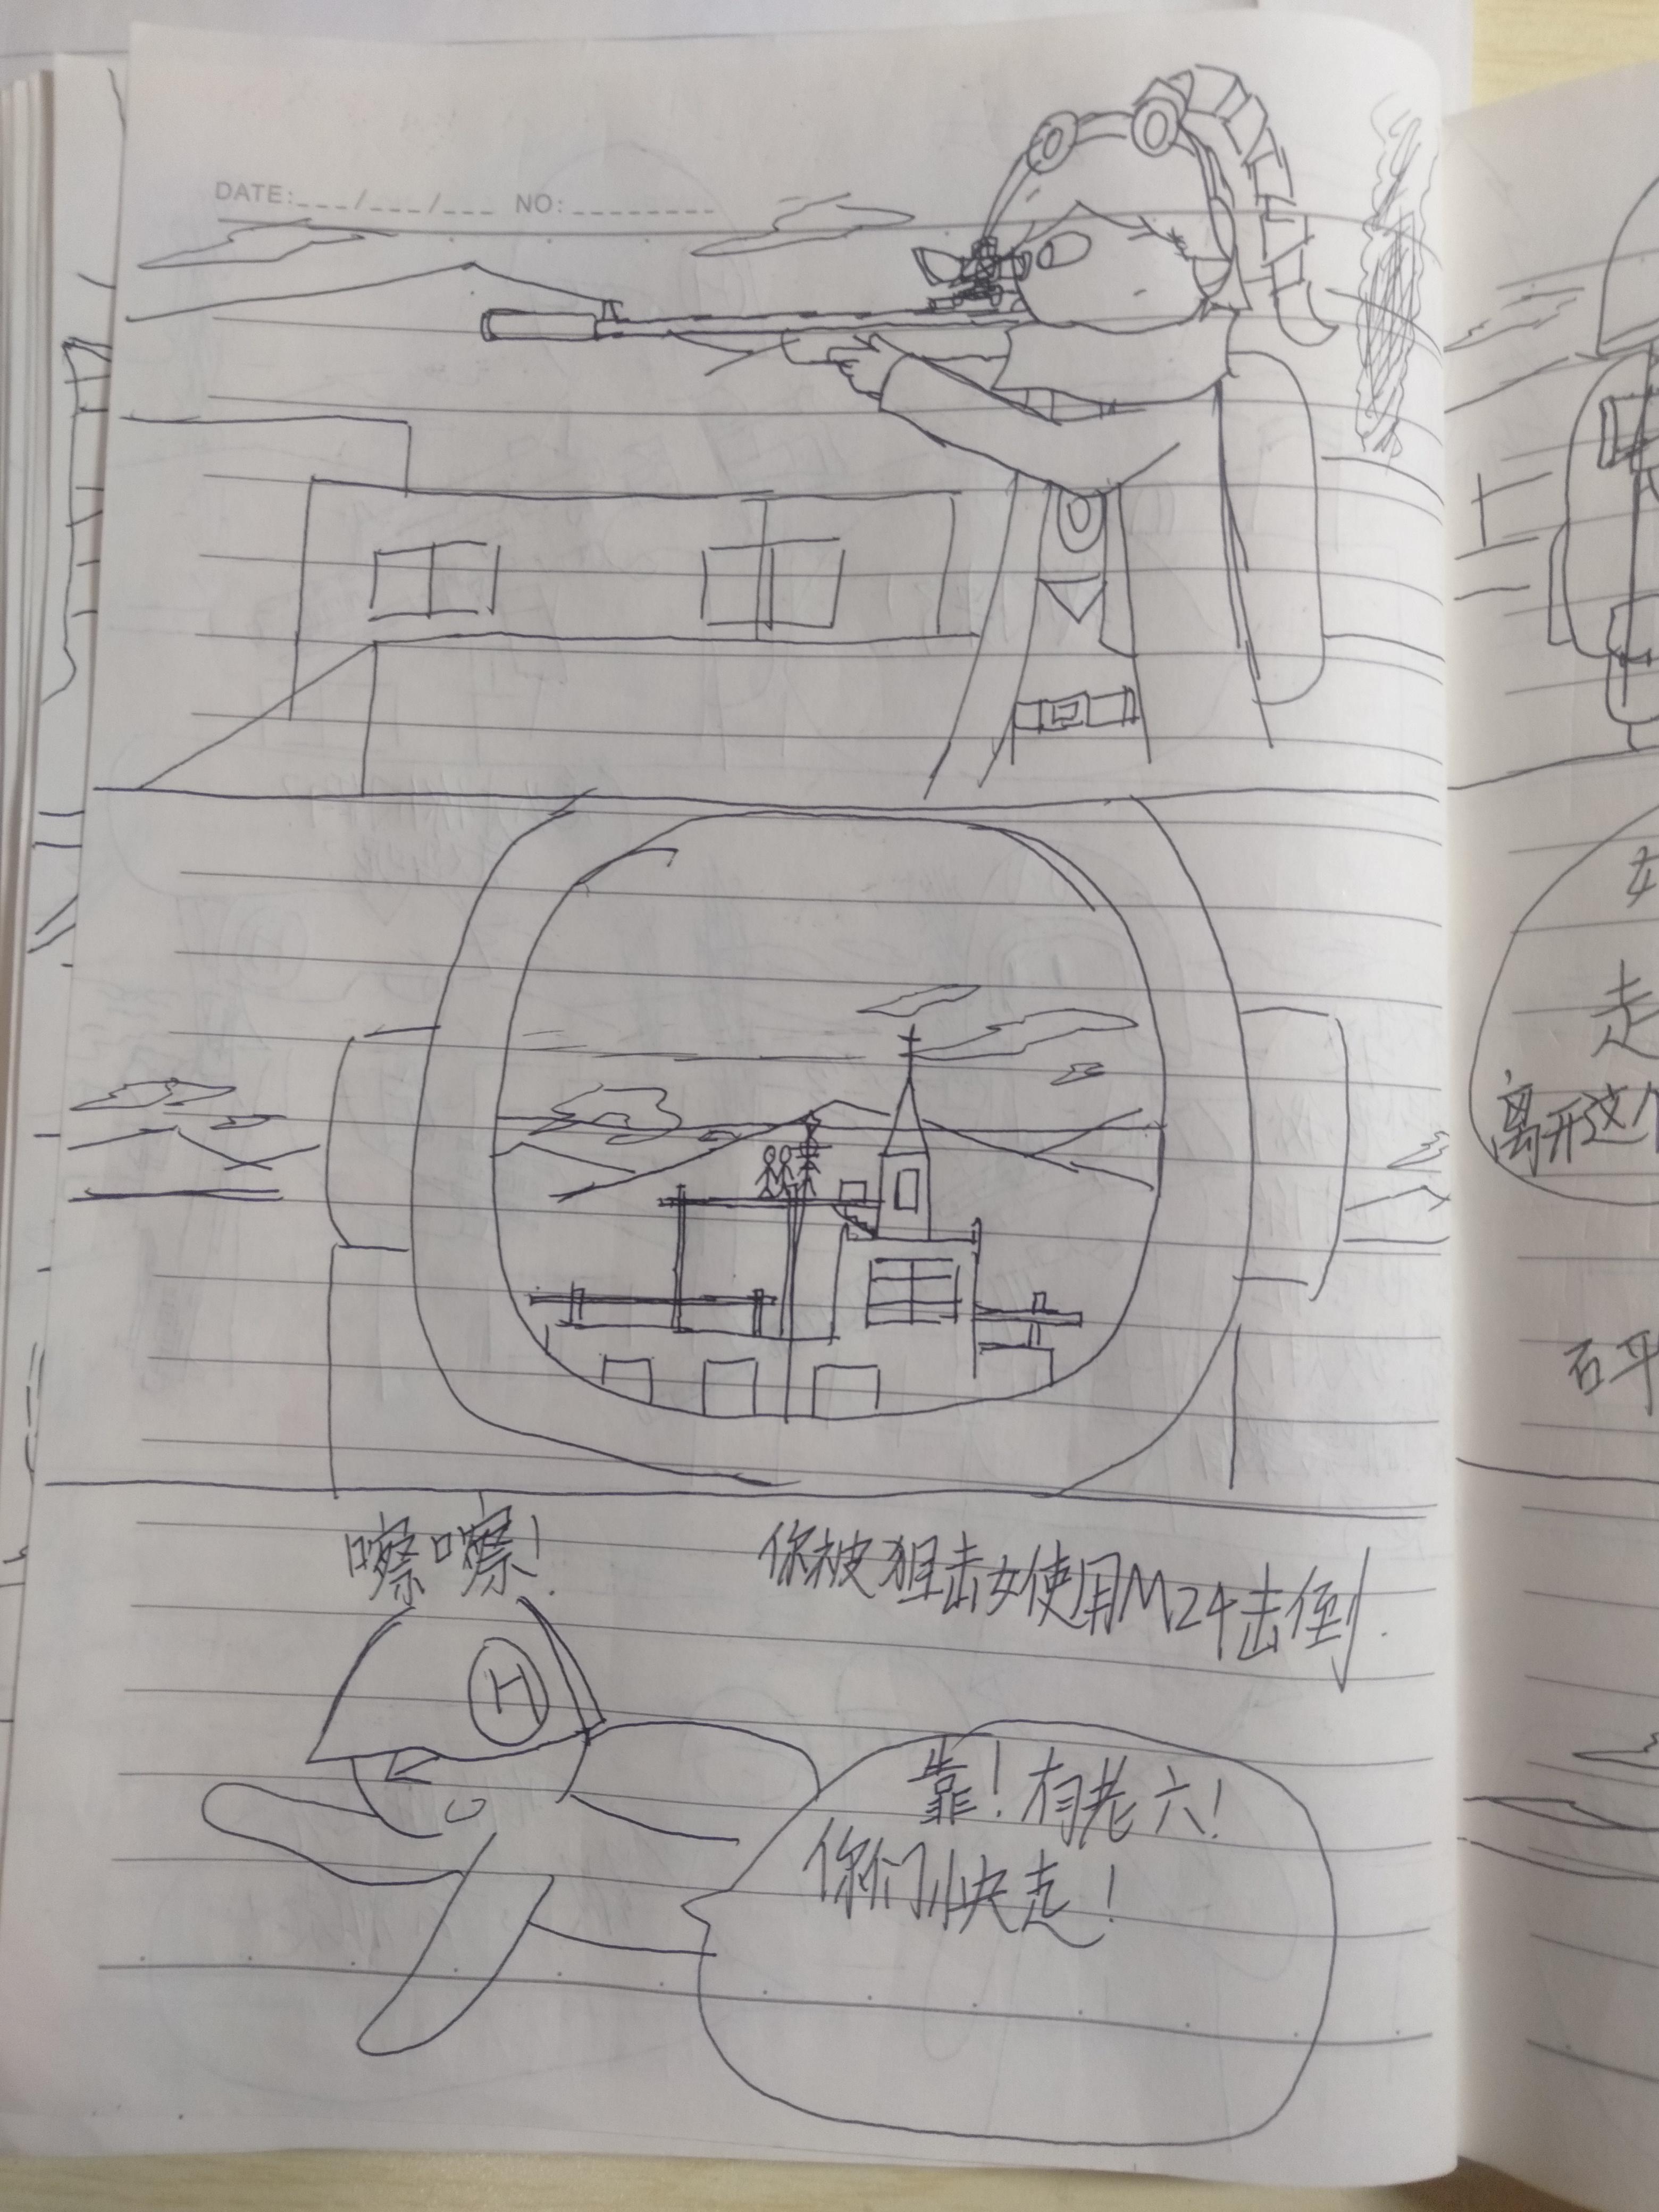 DATE:___/___/___ NO:________
嚓嚓!
你被狙击女使用M24击倒.
H
靠!有老六!
你们快走!
走
离开这个